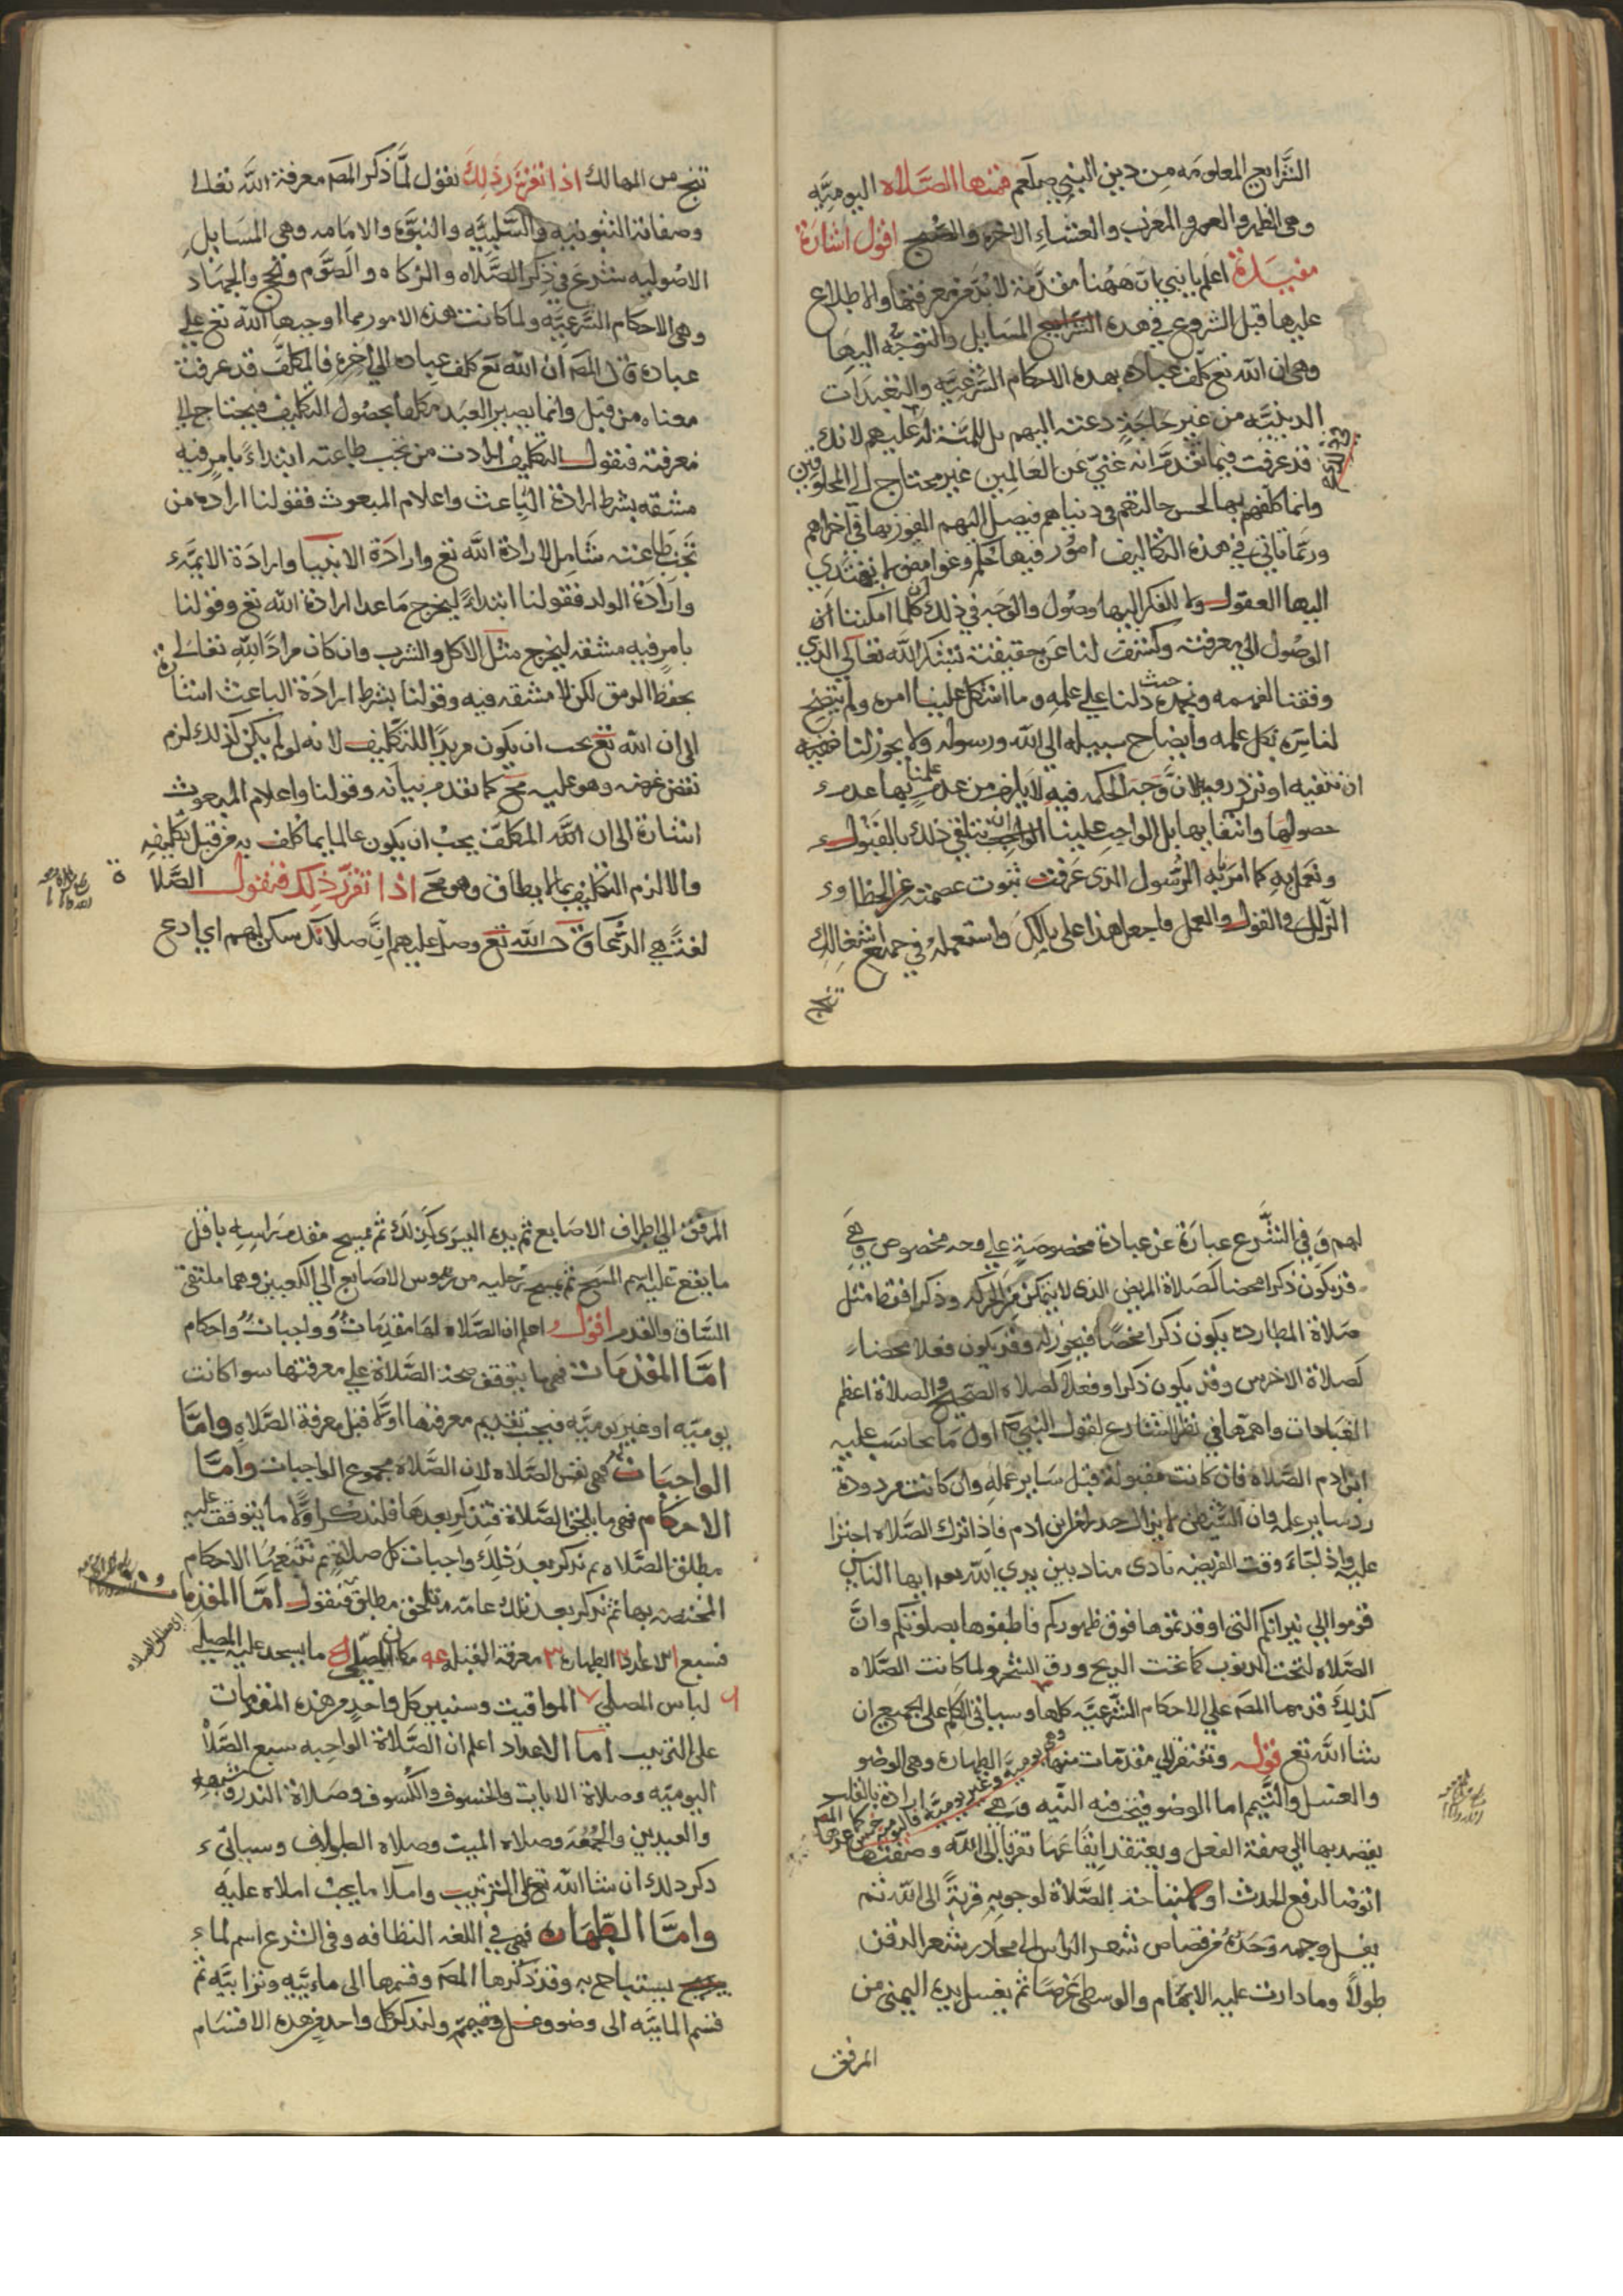 الشرايع المعلومه من دين النبي صلعم فمنها الصلاه اليوميه
وهى الظهر والعصر والمغرب والعشاء الاخره والصبح اقول اشارة
مفيدة اعلم يا بني بان ههنا مقدمة لابد من معرفتها والاطلاع
عليها قبل الشروع في هذه المسايل والتوجه اليها
وهى ان الله تع كلف عباده بهذه الاحكام الشرعيه والتعبدات
الدينيه من غير حاجة دعته اليهم بل المنة له عليهم لانك
قد عرفت فيما تقدم انه غني عن العالمين غير محتاج الى المخلوقين
وانما كلفهم بها لحسن حالتهم في دنياهم فيصل اليهم الفوز بها في اخراهم
وربما ياتي في هذه التكاليف امور فيها حكم وغوامض لم يهتدي
اليها العقول ولا للفكر اليها وصول والوجه في ذلك ان كلما امكننا
الوصول الى معرفته وكشف لنا عن حقيقته نشكر الله تعالى الذي
وفقنا لفهمه ونحمده حيث دلنا على علمه وما اشكل علينا امره ولم يتضح
لنا سره نكل علمه وايضاح سبيله الى الله ورسوله ولا يجوز لنا
ان ننفيه او نرد رويه لان وجه الحكمه فيه لا يلزم من عدم علمنا بها عدم
حصولها وانتفايها بل الواجب علينا ان نتلقي ذلك بالقبول
ونعمل به كما امر به الرسول الذى عرفت ثبوت عصمته عن الخطا و
الزلل في القول والعمل فاجعل هذا على بالك واستعمله في جميع اشغالك
تنج
تنج من المهالك اذا تقرر ذلك نقول لما ذكر المصـ معرفة الله تعالى
وصفاته الثبوتيه والسلبيه والنبوة والامامه وهى المسايل
الاصوليه شرع في ذكر الصلاه والزكاه والصوم والحج والجهاد
وهى الاحكام الشرعيه ولما كانت هذه الامور مما اوجبها الله تع على
عباده قال المصـ ان الله تع كلف عباده الى اخره فالمكلف قد عرفت
معناه من قبل وانما يصير العبد مكلفا بحصول التكليف فيحتاج الى
معرفته فنقول التكليف ارادت من تجب طاعته ابتداء بامر فيه
مشقه بشرط ارادة الباعث واعلام المبعوث فقولنا اراده من
تجب طاعته شامل لارادة الله تع وارادة الانبيا وارادة الايمه
وارادة الولد فقولنا ابتداء ليخرج ما عدا ارادة الله تع وقولنا
بامر فيه مشقه ليخرج مثل الاكل والشرب وان كان مرادا لله تعالى
بحفظ الرمق لكن لا مشقه فيه وقولنا بشرط ارادة الباعث اشارة
الى ان الله تع يجب ان يكون مريدا للتكليف لانه لو لم يكن كذلك لزم
نقض غرضه وهو عليه مح كما تقدم بيانه وقولنا واعلام المبعوث
اشارة الى ان الله المكلف يجب ان يكون عالما بما كلف به من قبل تكليفه
والا لزم التكليف بما لا يطاق وهو مح اذا تقرر ذلك فنقول الصلاة
لغة هي الدعا قال الله تع وصل عليهم ان صلاتك سكن لهم اي ادع
لهم وفي الشرع عبارة عن عبادة مخصوصة على وجه مخصوص وهي
قد يكون ذكرا محضا كصلاة المريض الذى لا يتمكن من الحركه وذكرا فقط مثل
صلاة المطارده يكون ذكرا محضا فيجوز له وقد يكون فعلا محضا
كصلاة الاخرس وقد يكون ذكرا وفعلا كصلاه الصحيح والصلاة اعظم
العبادات واهمها في نظر الشارع لقول النبي ص اول ما يحاسب عليه
ابن ادم الصلاه فان كانت مقبولة قبل ساير عمله وان كانت مردودة
رد ساير عمله وان الشيطن
عليه واذا جاء وقت الفريضه نادى مناد بين يدي الله ايها الناس
قوموا الى نيرانكم التى اوقدتموها فوق ظهوركم فاطفوها بصلوتكم وان
الصلاه لتحت الذنوب كما تحت الريح ورق الشجر ولما كانت الصلاه
كذلك قدمها المصـ على الاحكام الشرعيه كلها وسياتي الكلم على الجميع ان
شا الله تع قوله وتفتقر الى مقدمات منها الطهاره وهى الوضو
والغسل والتيمم اما الوضو فيجب فيه النيه وهي ارادة بالقلب
يقصد بها الى صفة الفعل ويعتقد ايقاعها تقربا الى الله وصفتها
اتوضا لرفع الحدث او لاستباحة الصلاة لوجوبه قربة الى الله ثم
يغسل وجهه وحده من قصاص شعر الراس الى محادر شعر الذقن
طولا وما دارت عليه الابهام والوسطى عرضا ثم يغسل يده اليمنى من
المرفق
المرفق الى اطراف الاصابع ثم يده اليسرى كذلك ثم يمسح مقدم راسه باقل
ما يقع عليه اسم المسح ثم يمسح رجليه من رءوس الاصابع الى الكعبين وهما ملتقى
الساق والقدم اقول اعلم ان الصلاه لها مقدمات وواجبات واحكام
اما المقدمات فهى ما يتوقف صحة الصلاة على معرفتها سوا كانت
يوميه او غير يوميه فيجب تقديم معرفتها اولا قبل معرفة الصلاه واما
الواجبات فهى نفس الصلاه لان الصلاة مجموع الواجبات واما
الاحكام فهى ما يلحق الصلاة فتذكر بعدها فلنذكر اولا ما يتوقف عليه
مطلق الصلاه ثم نذكر بعد ذلك واجبات كل صلاة ثم نتبعها الاحكام
المختصه بها ثم نذكر بعد ذلك عامه تلحق مطلق فنقول اما المقدمات
فسبع الاعداد الطهارة ٣ معرفة القبله مكان المصلي ما يسجد عليه المصلي
لباس المصلي ٧ المواقيت وسنبين كل واحد من هذه المقدمات
على الترتيب اما الاعداد اعلم ان الصلاة الواجبه سبع الصلاة
اليوميه وصلاة الايات والخسوف والكسوف وصلاة النذر وشبهه
والعيدين والجمعة وصلاه الميت وصلاه الطواف وسياتي
ذكر ذلك ان شا الله تع على الترتيب واملا ما يجب املاه عليه
واما الطهاره فهى في اللغه النظافه وفى الشرع اسم لما
يستباح به وقد ذكرها المصـ وقسمها الى مائيه وترابيه ثم
قسم المائيه الى وضو وغسل وتيمم ولنذكر كل واحد من هذه الاقسام